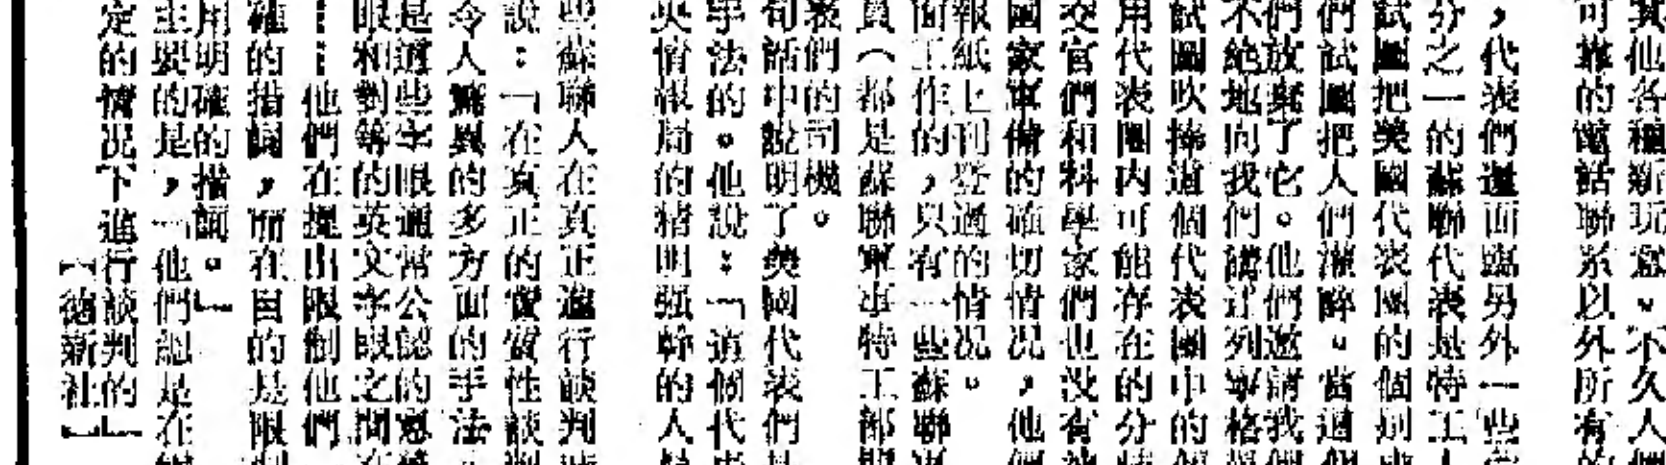 其他各種新玩意。不久人們
可靠的電話聯系以外所有的
，代表們還面臨另外一些
分之一的蘇聯代表是特工人
試圖把美國代表團的個別
們試圖把人們灌醉。當這個
們放棄了它。他們邀請我
不絕地向我們講述列寧格
試圖吹捧這個代表團中的個
用代表團內可能存在的分
交官們和科學家們也沒有
國家軍備的確切情况，他們
報紙上刊登過的情况。
面工作的，只有一些蘇聯
員（都是蘇聯軍事特工部
表們的司機。
句話中說明了美國代表們
手法的。他說：「這個代表
央情報局的精明强幹的人
些蘇聯人在真正進行談判
說：「在真正的實質性談判
令人驚異的多方面的手法
是這些字眼通常公認的意
眼和對等的英文字眼之間
⋯⋯他們在提出限制他們
確的措詞，而在目的是限制
用明確的措詞。」
主要的是，「他們總是在
定的情况下進行談判的」
【德新社】